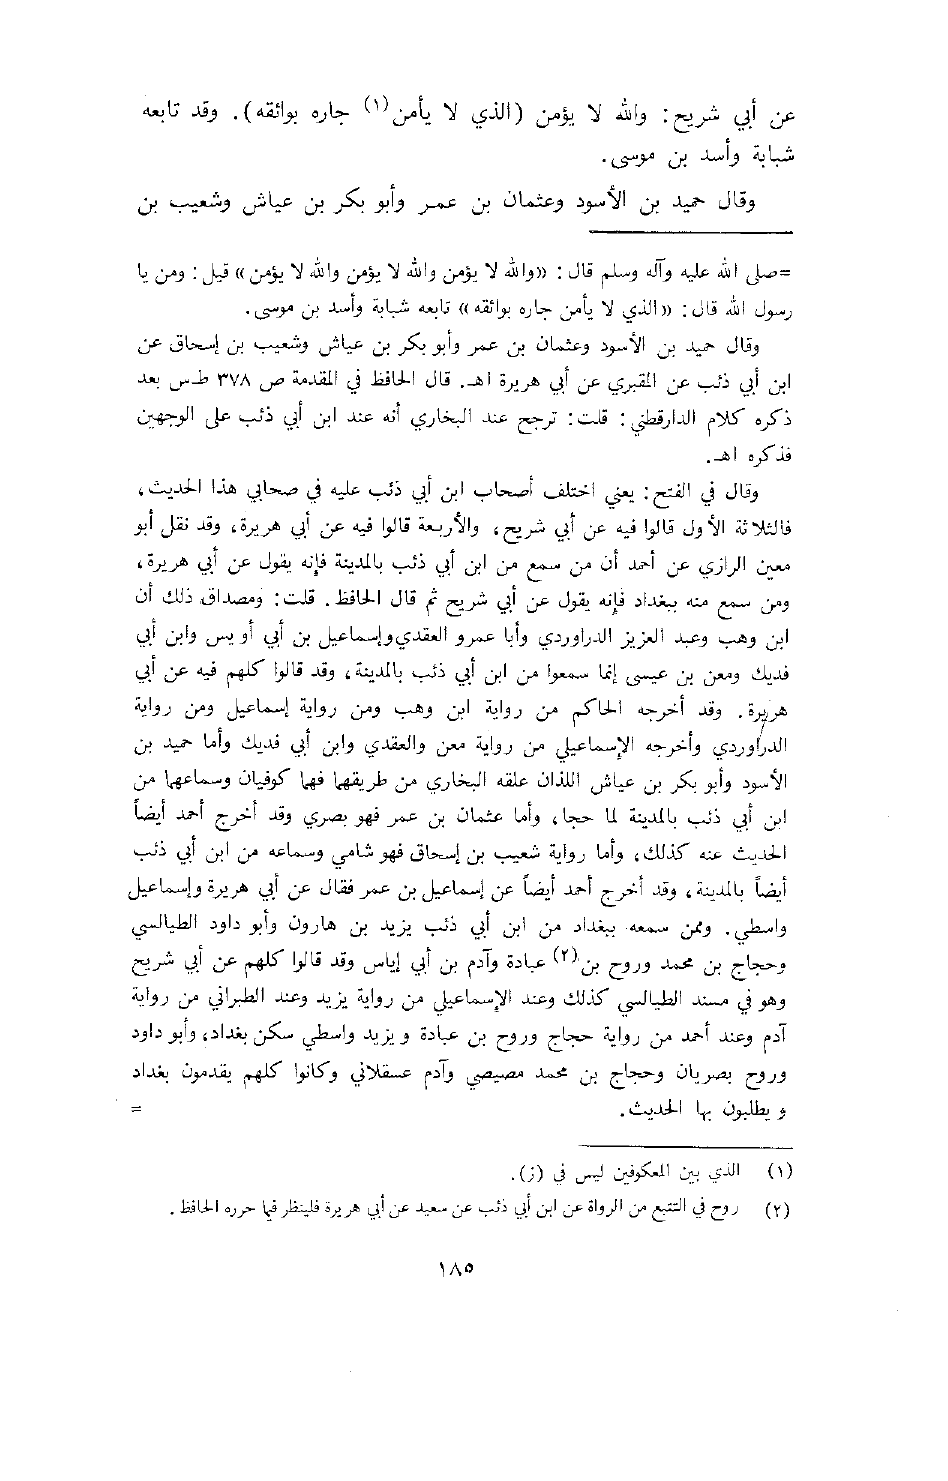 عن أبي شريح: والله لا يؤمن (الذي لا يأمن(١) جاره بوائقه). وقد تابعه
شبابة وأسد بن موسى.
وقال حميد بن الأسود وعثمان بن عمر وأبو بكر بن عياش وشعيب بن
=صلى الله عليه وآله وسلم قال: «والله لا يؤمن والله لا يؤمن والله لا يؤمن» قيل: ومن يا
رسول الله قال: «الذي لا يأمن جاره بوائقه» تابعه شبابة وأسد بن موسى.
وقال حميد بن الأسود وعثمان بن عمر وأبو بكر بن عياش وشعيب بن إسحاق عن
ابن أبي ذئب عن المقبري عن أبي هريرة اهـ. قال الحافظ في المقدمة ص ٣٧٨ ط.س بعد
ذكره كلام الدارقطني: قلت: ترجح عند البخاري أنه عند ابن أبي ذئب على الوجهين
فذكره اهـ.
وقال في الفتح: يعني اختلف أصحاب ابن أبي ذئب عليه في صحابي هذا الحديث،
فالثلاثة الأول قالوا فيه عن أبي شريح، والأربعة قالوا فيه عن أبي هريرة، وقد نقل أبو
معين الرازي عن أحمد أن من سمع من ابن أبي ذئب بالمدينة فإنه يقول عن أبي هريرة،
ومن سمع منه ببغداد فإنه يقول عن أبي شريح ثم قال الحافظ. قلت: ومصداق ذلك أن
ابن وهب وعبد العزيز الدراوردي وأبا عمرو العقدي وإسماعيل بن أبي أويس وابن أبي
فديك ومعن بن عيسى إنما سمعوا من ابن أبي ذئب بالمدينة، وقد قالوا كلهم فيه عن أبي
هريرة. وقد أخرجه الحاكم من رواية ابن وهب ومن رواية إسماعيل ومن رواية
الدراوردي وأخرجه الإسماعيلي من رواية معن والعقدي وابن أبي فديك وأما حميد بن
الأسود وأبو بكر بن عياش اللذان علقه البخاري من طريقها فهما كوفيان وسماعهما من
ابن أبي ذئب بالمدينة لما حجا، وأما عثمان بن عمر فهو بصري وقد أخرج أحمد أيضاً
الحديث عنه كذلك، وأما رواية شعيب بن إسحاق فهو شامي وسماعه من ابن أبي ذئب
أيضاً بالمدينة، وقد أخرج أحمد أيضاً عن إسماعيل بن عمر فقال عن أبي هريرة وإسماعيل
واسطي. وممن سمعه ببغداد من ابن أبي ذئب يزيد بن هارون وأبو داود الطيالسي
وحجاج بن محمد وروح بن(٢) عبادة وآدم بن أبي إياس وقد قالوا كلهم عن أبي شريح
وهو في مسند الطيالسي كذلك وعند الإسماعيلي من رواية يزيد وعند الطبراني من رواية
آدم وعند أحمد من رواية حجاج وروح بن عبادة ويزيد واسطي سكن بغداد، وأبو داود
وروح بصريان وحجاج بن محمد مصيصي وآدم عسقلاني وكانوا كلهم يقدمون بغداد
ويطلبون بها الحديث. =
(١) الذي بين المعكوفين ليس في (ز).
(٢) روح في التتبع من الرواة عن ابن أبي ذئب عن سعيد عن أبي هريرة فلينظر فيما حرره الحافظ.
١٨٥